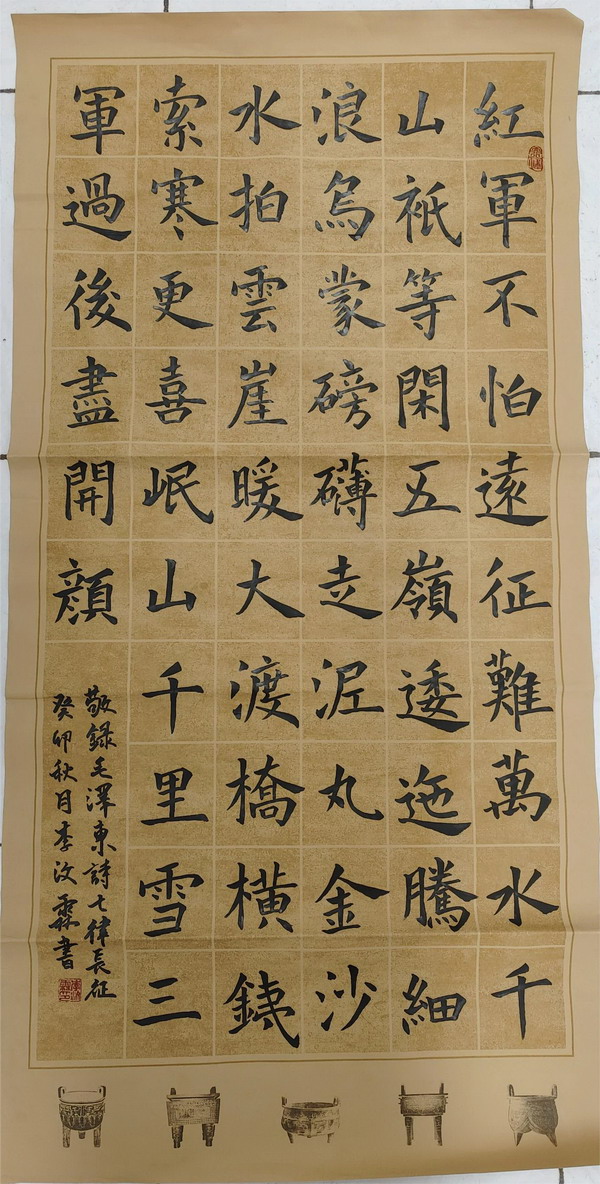 紅軍不怕遠征難萬水千
山祇等閑五嶺逶迤騰細
浪烏蒙磅礴走泥丸金沙
水拍雲崖暖大渡橋橫鐵
索寒更喜岷山千里雪三
軍過後盡開顏
敬錄毛澤東詩七律長征
癸卯秋月李汶霖書